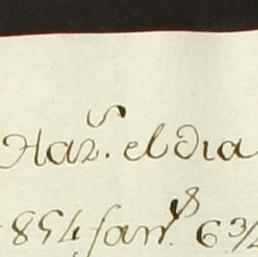 Haz.s el dia
854 fan.s 6 3/4